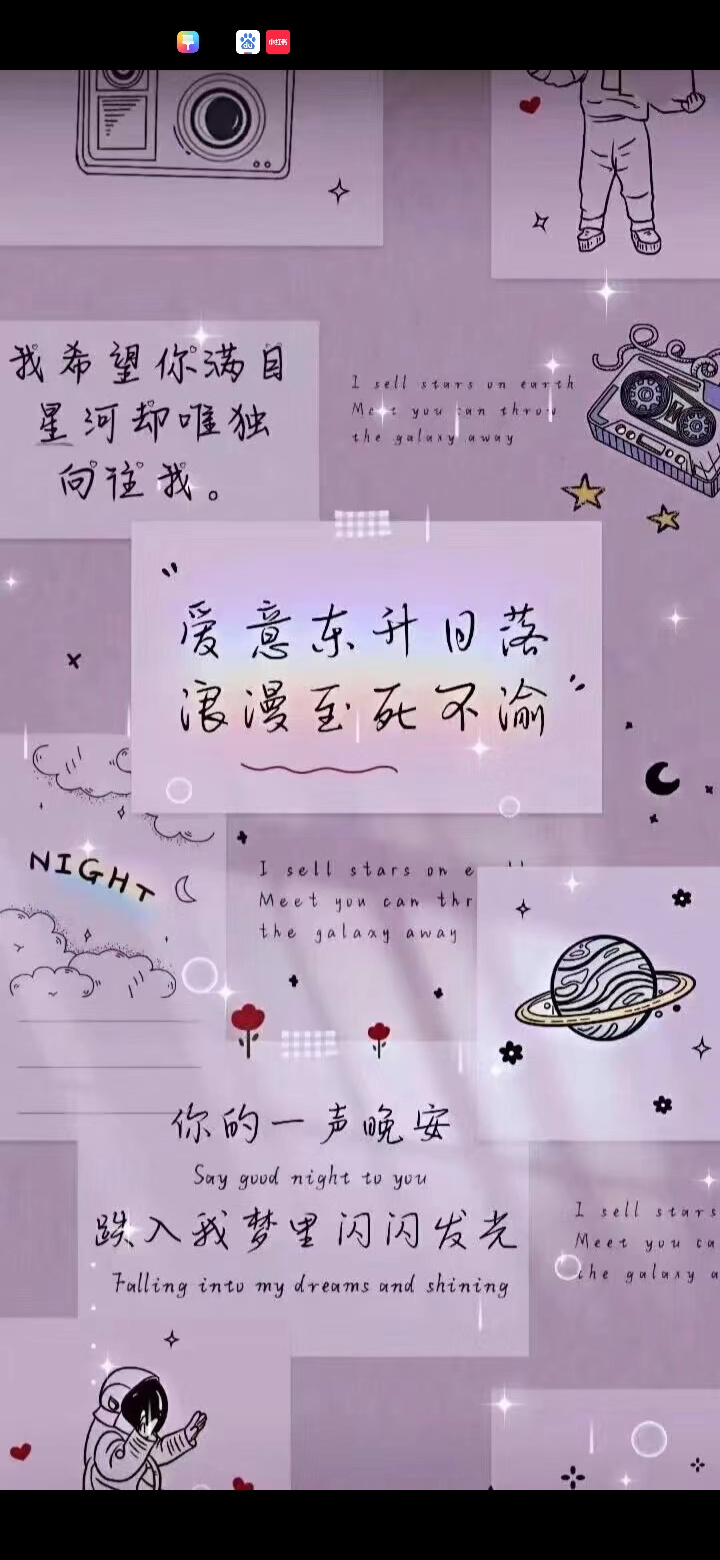 du
小红书
我希望你满目
星河却唯独
向往我。
I sell stars on earth
Meet you can throw
the galaxy away
"爱意东升日落
浪漫至死不渝"
NIGHT
I sell stars on e
Meet you can thr
the galaxy away
你的一声晚安
Say good night to you
跌入我梦里闪闪发光
Falling into my dreams and shining
I sell stars
Meet you ca
the galaxy a